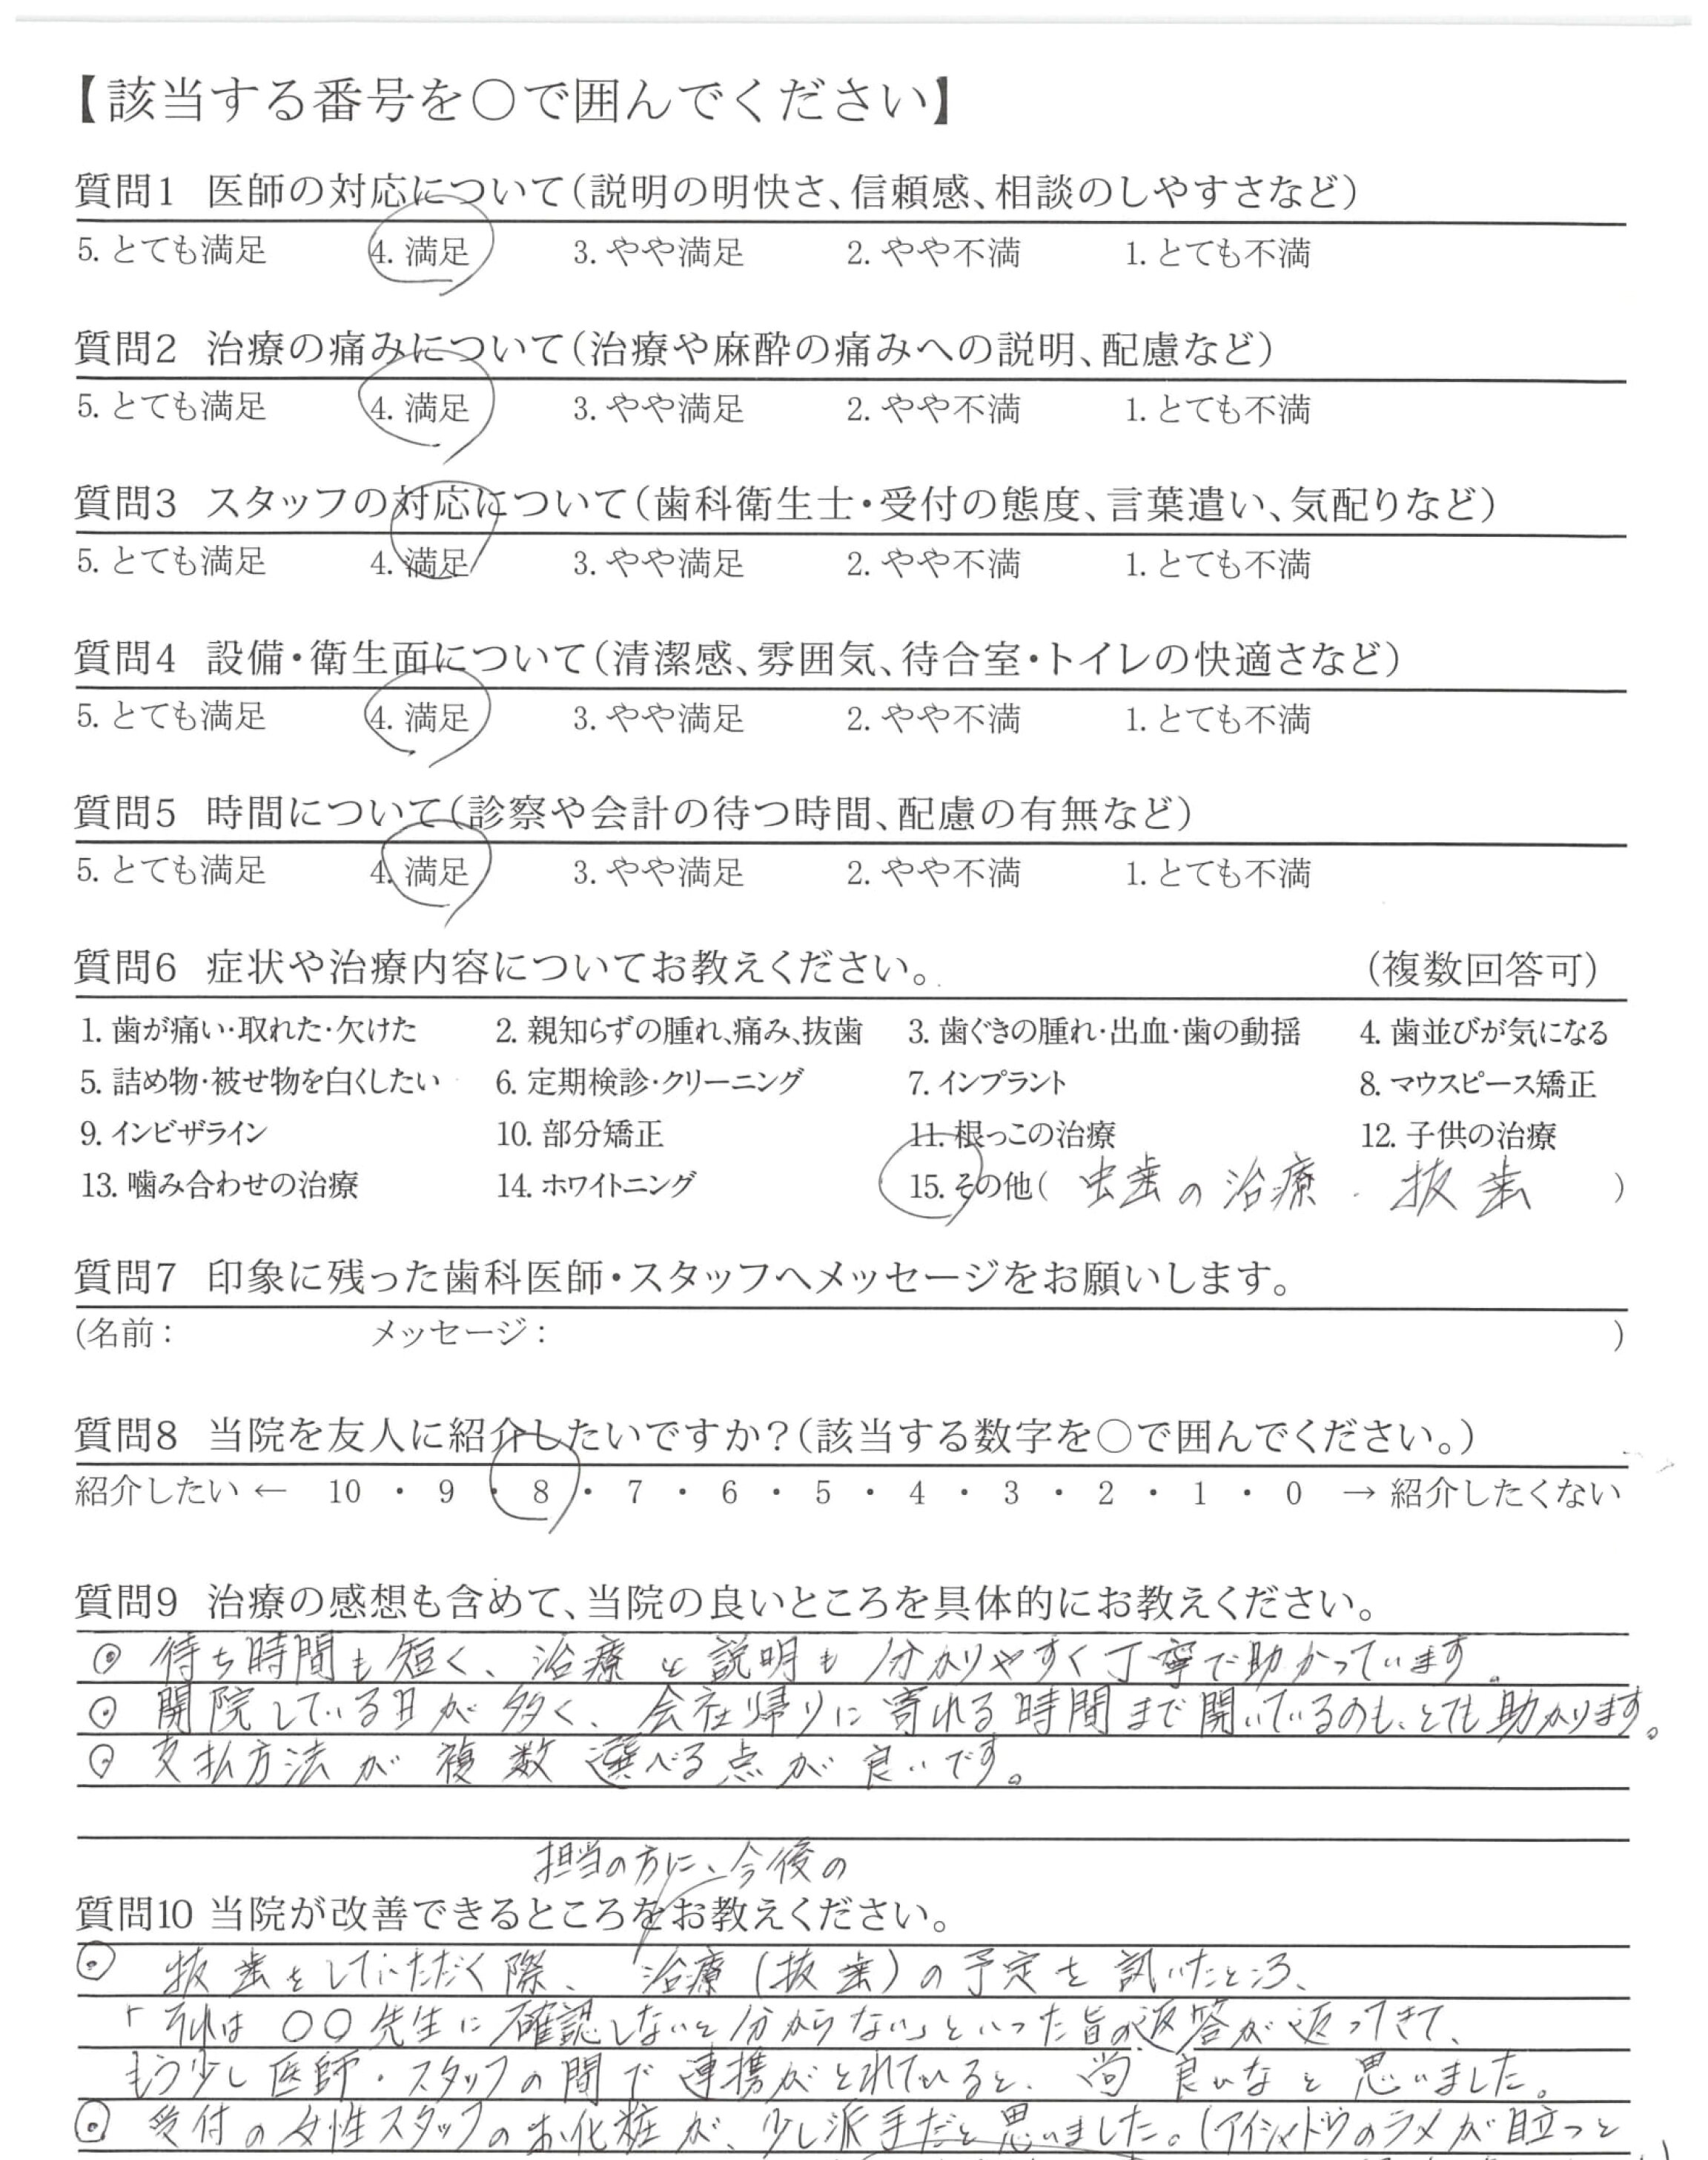 【該当する番号を○で囲んでください】
質問1 医師の対応について(説明の明快さ、信頼感、相談のしやすさなど)
5. とても満足 4. 満足 3. やや満足 2. やや不満 1. とても不満
質問2 治療の痛みについて(治療や麻酔の痛みへの説明、配慮など)
5. とても満足 4. 満足 3. やや満足 2. やや不満 1. とても不満
質問3 スタッフの対応について(歯科衛生士・受付の態度、言葉遣い、気配りなど)
5. とても満足 4. 満足 3. やや満足 2. やや不満 1. とても不満
質問4 設備・衛生面について(清潔感、雰囲気、待合室・トイレの快適さなど)
5. とても満足 4. 満足 3. やや満足 2. やや不満 1. とても不満
質問5 時間について(診察や会計の待つ時間、配慮の有無など)
5. とても満足 4. 満足 3. やや満足 2. やや不満 1. とても不満
質問6 症状や治療内容についてお教えください。 (複数回答可)
1. 歯が痛い・取れた・欠けた 2. 親知らずの腫れ、痛み、抜歯 3. 歯ぐきの腫れ・出血・歯の動揺 4. 歯並びが気になる
5. 詰め物・被せ物を白くしたい 6. 定期検診・クリーニング 7. インプラント 8. マウスピース矯正
9. インビザライン 10. 部分矯正 11. 根っこの治療 12. 子供の治療
13. 噛み合わせの治療 14. ホワイトニング 15. その他( 虫歯の治療・抜歯 )
質問7 印象に残った歯科医師・スタッフへメッセージをお願いします。
(名前: メッセージ: )
質問8 当院を友人に紹介したいですか?(該当する数字を○で囲んでください。)
紹介したい ← 10 ・ 9 ・ 8 ・ 7 ・ 6 ・ 5 ・ 4 ・ 3 ・ 2 ・ 1 ・ 0 → 紹介したくない
質問9 治療の感想も含めて、当院の良いところを具体的にお教えください。
◎ 待ち時間も短く、治療と説明も分かりやすく丁寧で助かっています。
◎ 開院している日が多く、会社帰りに寄れる時間まで開いているのも、とても助かります。
◎ 支払方法が複数選べる点が良いです。
担当の方に、今後の
質問10 当院が改善できるところをお教えください。
◎ 抜歯をしていただく際、治療(抜歯)の予定を訊いたところ、
「それは○○先生に確認しないと分からない」といった旨の返答が返ってきて、
もう少し医師・スタッフの間で連携がとれていると、尚良いなと思いました。
◎ 受付の女性スタッフのお化粧が、少し派手だと思いました。(アイシャドウのラメが目立つと